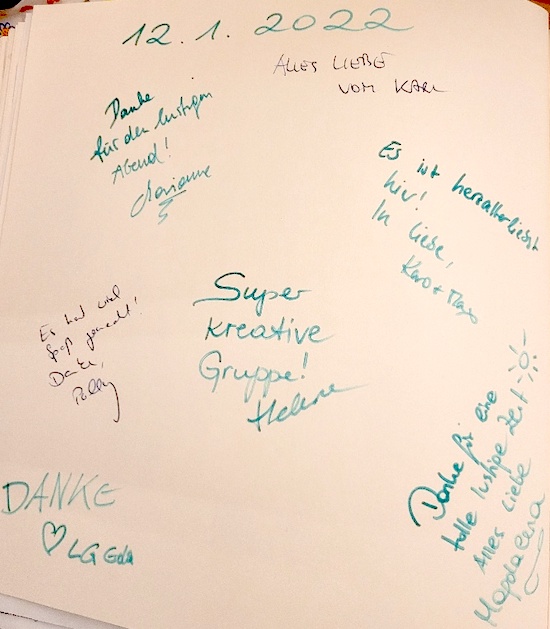 12.1.2022
ALLES LIEBE
VOM KARL
Danke
für den lustigen
Abend!
Marianne
Es ist herzallerliebst
hier!
In Liebe,
Karo + 
Es hat viel
Spaß gemacht!
Danke,
Polly
Super
kreative
Gruppe!
Helene
Danke für eine
tolle lustige Zeit
Alles Liebe
Magdalena
DANKE
LG